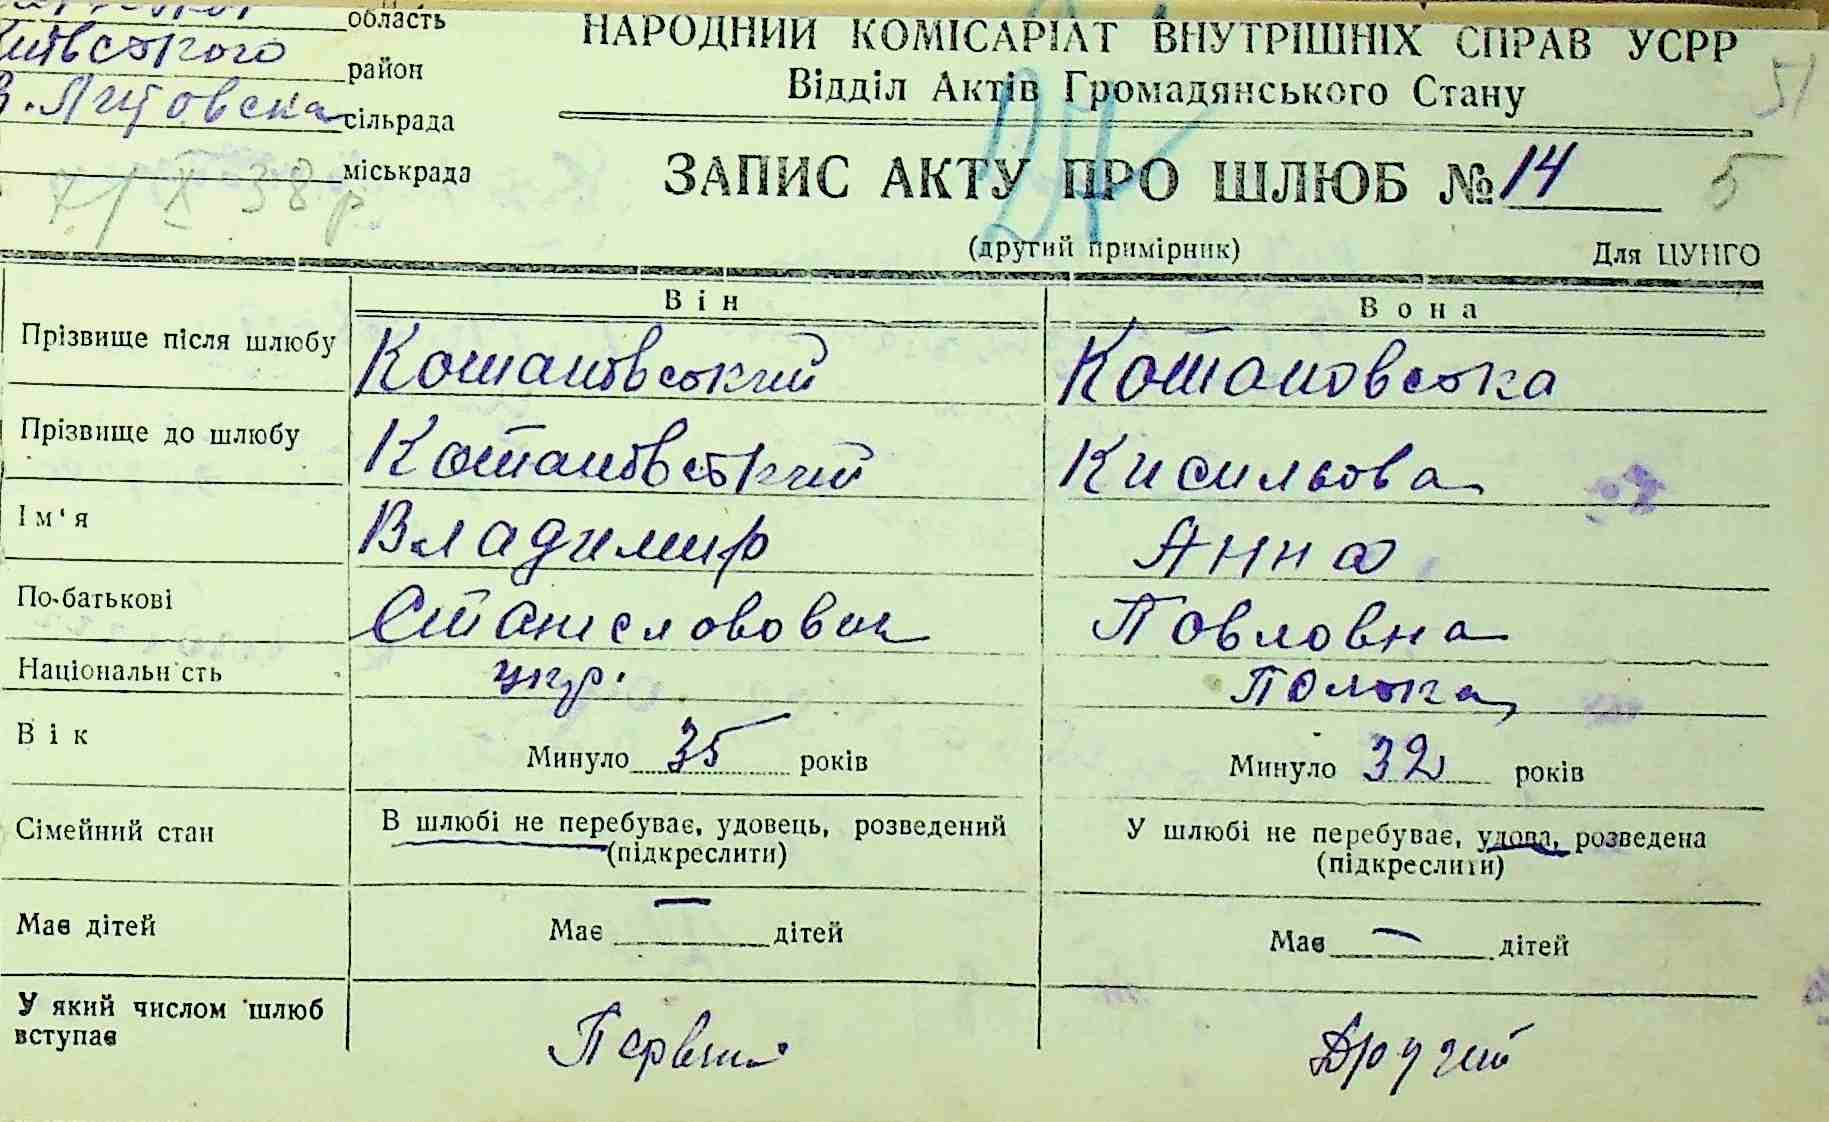 область
район
В. Литовська сільрада
міськрада
7/X 38 р.
НАРОДНИЙ КОМІСАРІАТ ВНУТРІШНІХ СПРАВ УСРР
Відділ Актів Громадянського Стану
51
ЗАПИС АКТУ ПРО ШЛЮБ № 14
5
(другий примірник) Для ЦУНГО
Він Вона
Прізвище після шлюбу Котановський Котановська
Прізвище до шлюбу Котановський Кисильова
Ім'я Владимир Анна
По-батькові Станиславович Павловна
Національність укр. Полька
Вік Минуло 35 років Минуло 32 років
Сімейний стан В шлюбі не перебуває, удовець, розведений У шлюбі не перебуває, удова, розведена
(підкреслити) (підкреслити)
Має дітей Має — дітей Має — дітей
У який числом шлюб
вступає Первий Другий